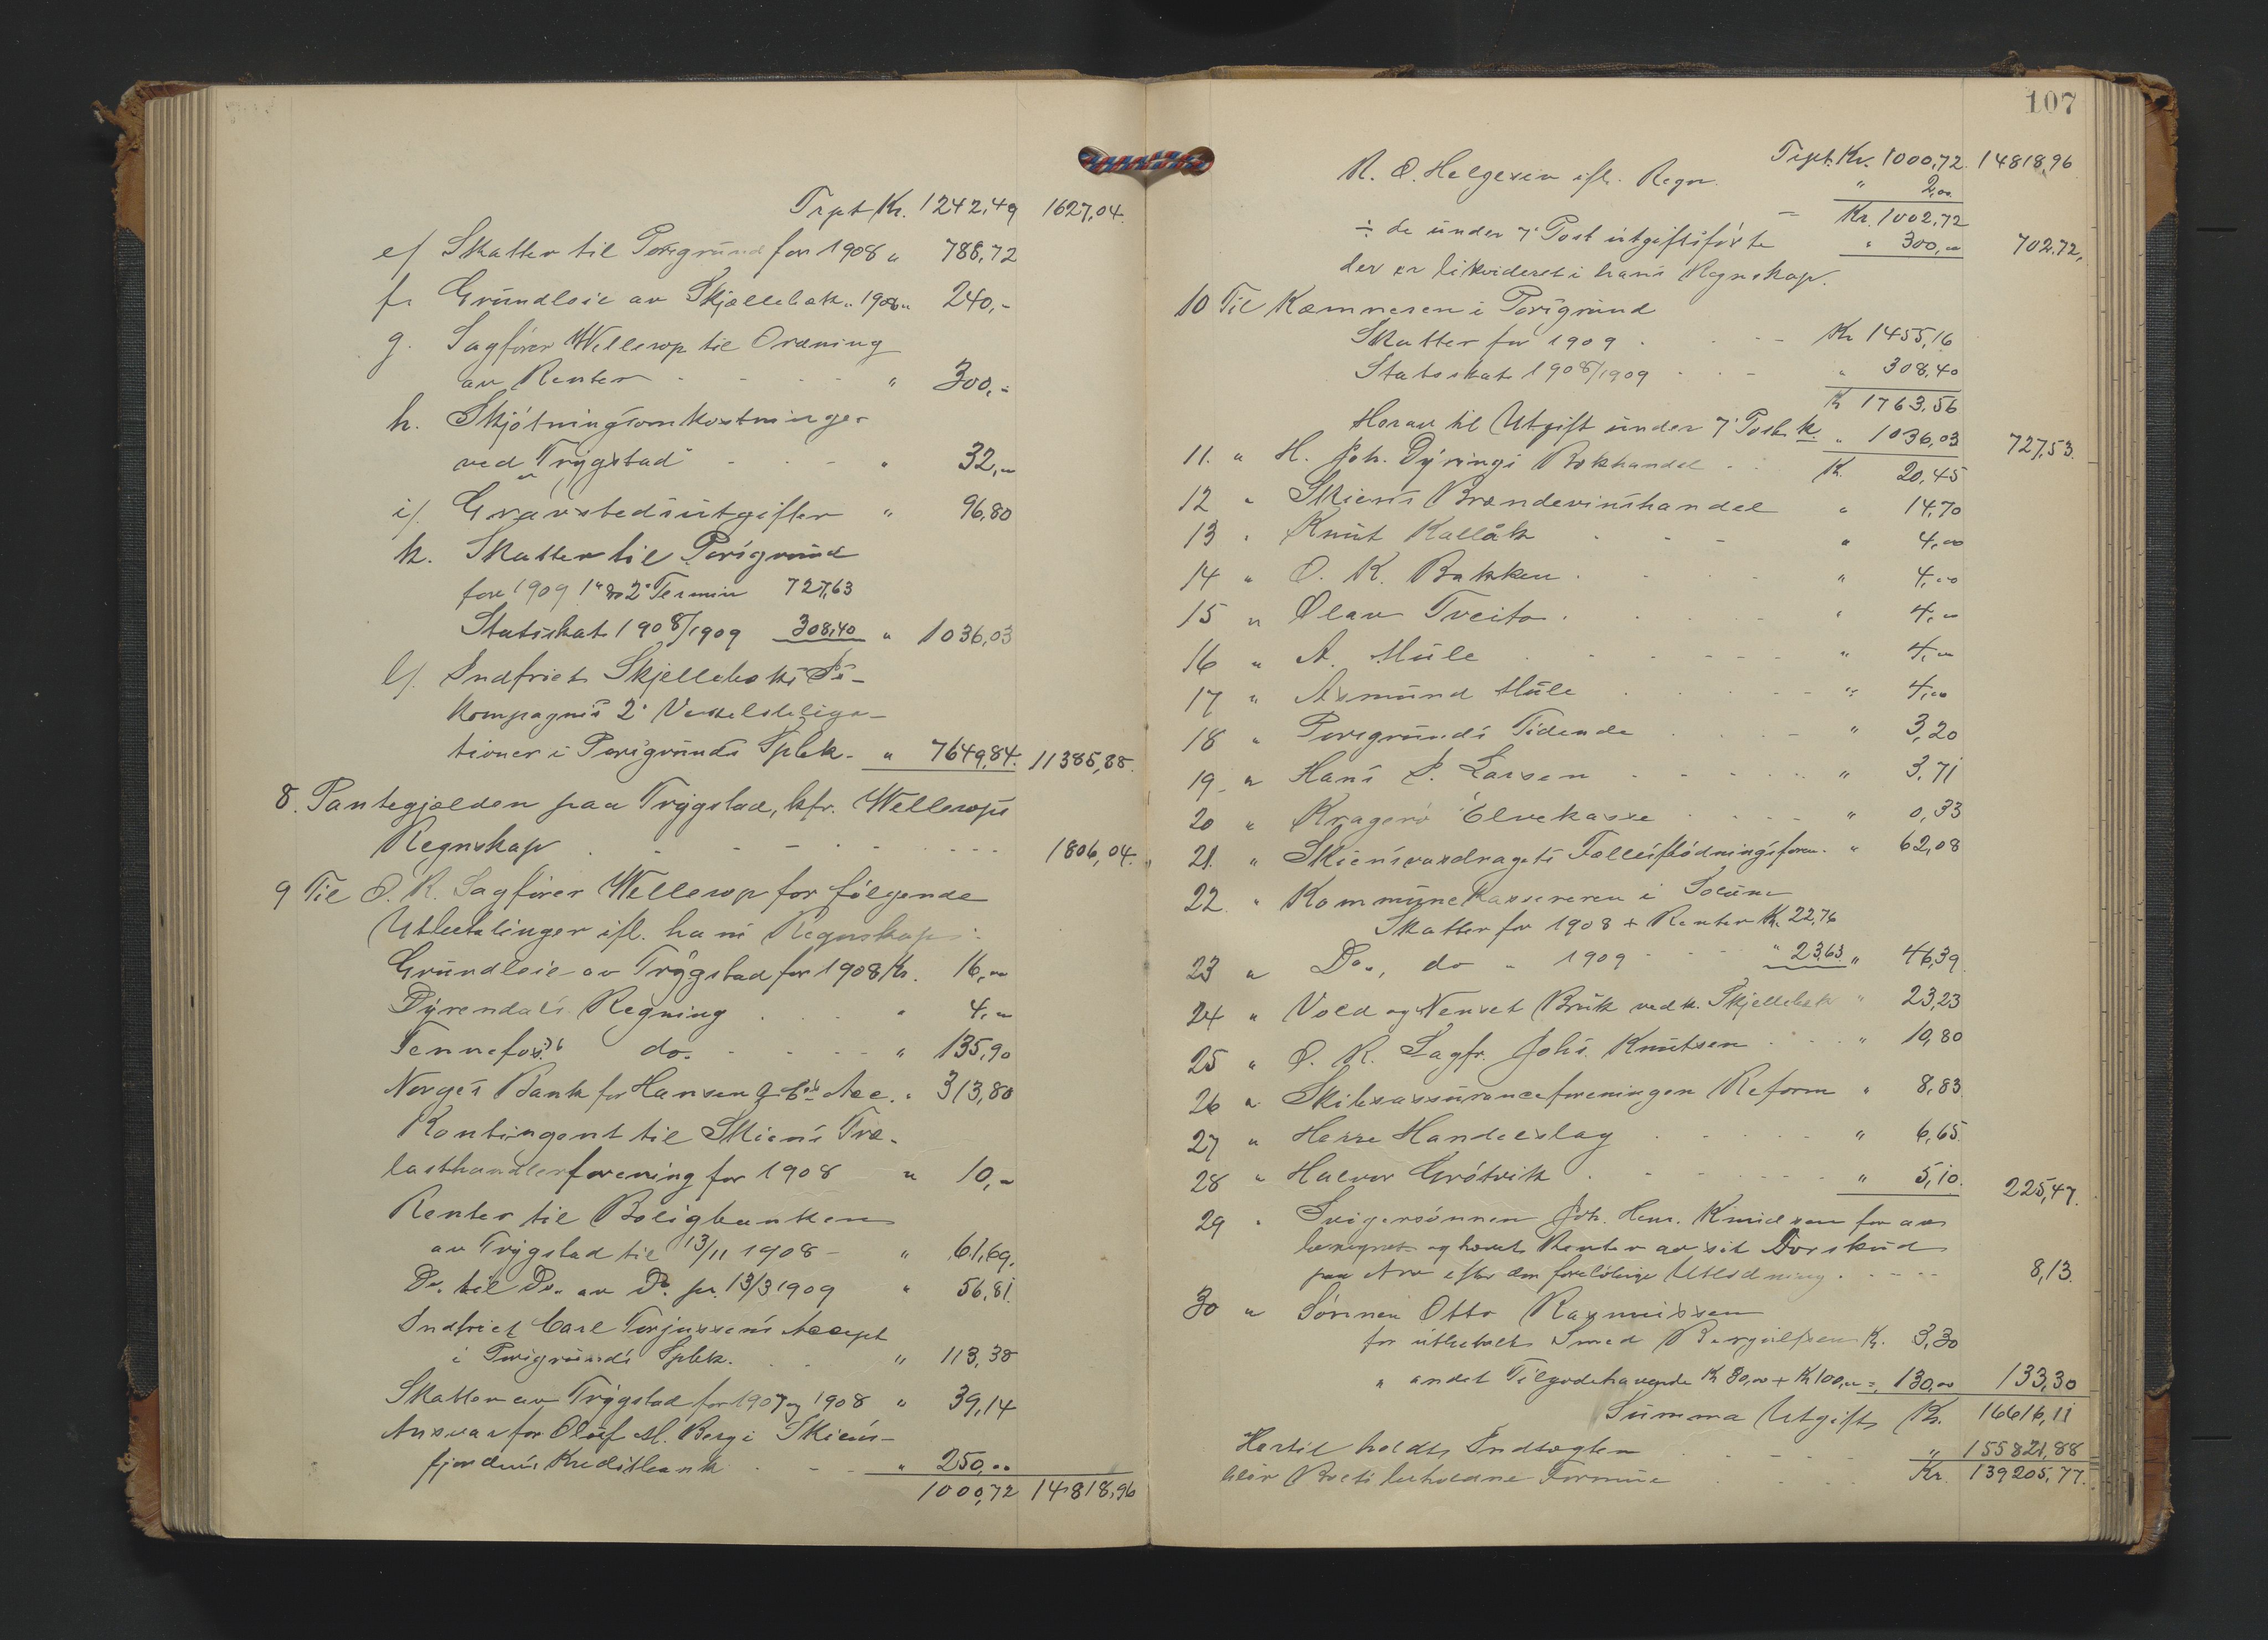 Trpt Kr. 1242,49 1627,04.
e/ Skatter til Porsgrund for 1908 " 788,72
f. Grundleie av Skjællebæk " 1908 " 240,-
g. Sagfører Wellerop til Ordning
av Renter - - - - " 300,-
h. Skjøtningsomkostninger
ved Trygstad - - - " 32,00
i/. Gravstedsutgifter " 96,80
k. Skatter til Porsgrund
for 1909 1' & 2' Termin 727,63
Statsskat 1908/1909 308,40 " 1036,03
l/. Indfriet Skjellebæks Is-
kompagnis 2' Vexelobliga-
tioner i Porsgrunds Spbk. - " 7649,84. 11385,88.
8. Pantegjælden paa Trygstad, kfr. Wellerops
Regnskap . - - - - - . . . 1806,04.
9 Til O. R. Sagfører Wellerop for følgende
Utbetalinger ifl. hans Regnskap:
Grundleie av Trygstad for 1908 Kr. 16,00
Dyrendals Regning . . . " 4,00
Tennefos's do. - - - - " 135,90
Norges Bank for Hansen & Co's Acc. " 313,80
Kontingent til Skiens Træ-
lasthandlerforening for 1908 " 10,-
Renter til Boligbanken
av Trygstad til 13/11 1908 - " 61,69.
Do. til Do. av Do. pr. 13/3 1909 " 56,81.
Indfriet Carl Torjussens Accept
i Porsgrunds Spbk. . . " 113,38
Skatter av Trygstad for 1907 og 1908 " 39,14
Ansvar for Oluf M. Berg i Skiens-
fjordens Kreditbank . - - " 250,00
1000,72 14818,96
107
Trpt. Kr. 1000,72. 14818,96
R. O. Helgesen ifl. Regn. " 2,00
Kr. 1002,72
÷ de under 7' Post utgiftsførte " 300,00 702,72.
der er likvideret i hans Regnskap.
10 Til Kæmneren i Porsgrund
Skatter for 1909 . . - - Kr 1455,16
Statsskat 1908/1909 . . - " 308,40
Kr 1763,56
Herav til Utgift under 7' Post k. " 1036,03 727,53.
11. " H. Joh. Dyrings Bokhandel . . Kr. 20,45
12 " Skiens Brændevinshandel " 14,70
13 " Knut Kallåk . - - - " 4,00
14 " O. K. Bakken . . . . " 4,00
15 " Olav Tveito . . . . . " 4,00
16 " A. Mule . . - - - - " 4,00
17 " Asmund Mule . . . - - " 4,00
18 " Porsgrunds Tidende . . . - " 3,20
19 " Hans P. Larsen - - - - " 3,71
20 " Kragerø Elvekasse . . . - " 0,33
21. " Skiensvasdragets Fællesflødningsforen. " 62,08
22. " Kommunekassereren i Solum
Skatter for 1908 + Renter Kr. 22,76
23 " Do., do " 1909 - - " 23,63 " 46,39
24 " Vold og Nenset Bruk vedk. Skjellebæk " 23,23
25 " O. R. Sagfr. Johs. Knutsen . . . " 10,80
26 " Skibsassuranceforeningen Reform " 8,83
27 " Herre Handelslag . . . . " 6,65.
28 " Halvor Grøtvik . - - . . . " 5,10. 225,47.
29 " Svigersønnen Joh. Henr. for av
og hævet Renter av sit Forskud
paa Arv efter den foreløbige Utlodning . - - 8,13.
30 " Sønnen Otto Rasmussen
for utbetalt Smed Kr. 3,30
" andet Tilgodehavende Kr 30,00 + Kr 100,00 = " 130,00 133,30
Summa Utgift Kr. 16616,11
Hertil holdt Indtægten - - - . " 155821,88
blir Boets beholdne Formue . . . . Kr. 139205,77.